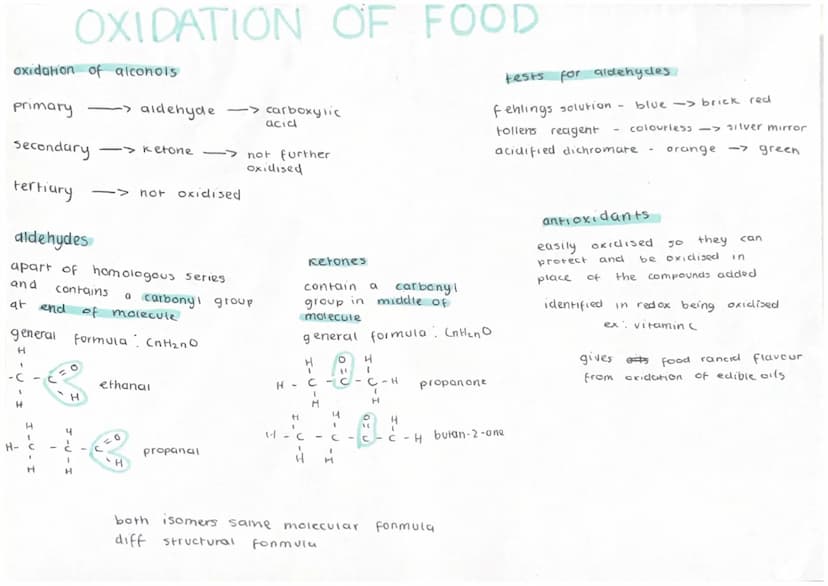 OXIDATION OF FOOD
oxidation of alcohols
primary ⟶ aldehyde ⟶ carboxylic
acid
secondary ⟶ ketone ⟶ not further
oxidised
tertiary ⟶ not oxidised
tests for aldehydes
fehlings solution - blue → brick red
tollens reagent - colourless → silver mirror
acidified dichromate - orange → green
aldehydes
apart of homologous series
and contains a carbonyl group
at end of molecule
general formula : CnH2nO
H
-C - C = O
H
H
ethanal
H H
H- C - C - C = O
H
H H
propanal
ketones
contain a carbonyl
group in middle of
molecule
general formula : CnH2nO
H O H
H - C - C - C - H propanone
H H
H H O H
H - C - C - C - C - H butan-2-one
H H
antioxidants
easily oxidised so they can
protect and be oxidised in
place of the compounds added
identified in redox being oxidised
ex: vitamin C
gives food rancid flavour
from oxidation of edible oils
both isomers same molecular formula
diff structural formula